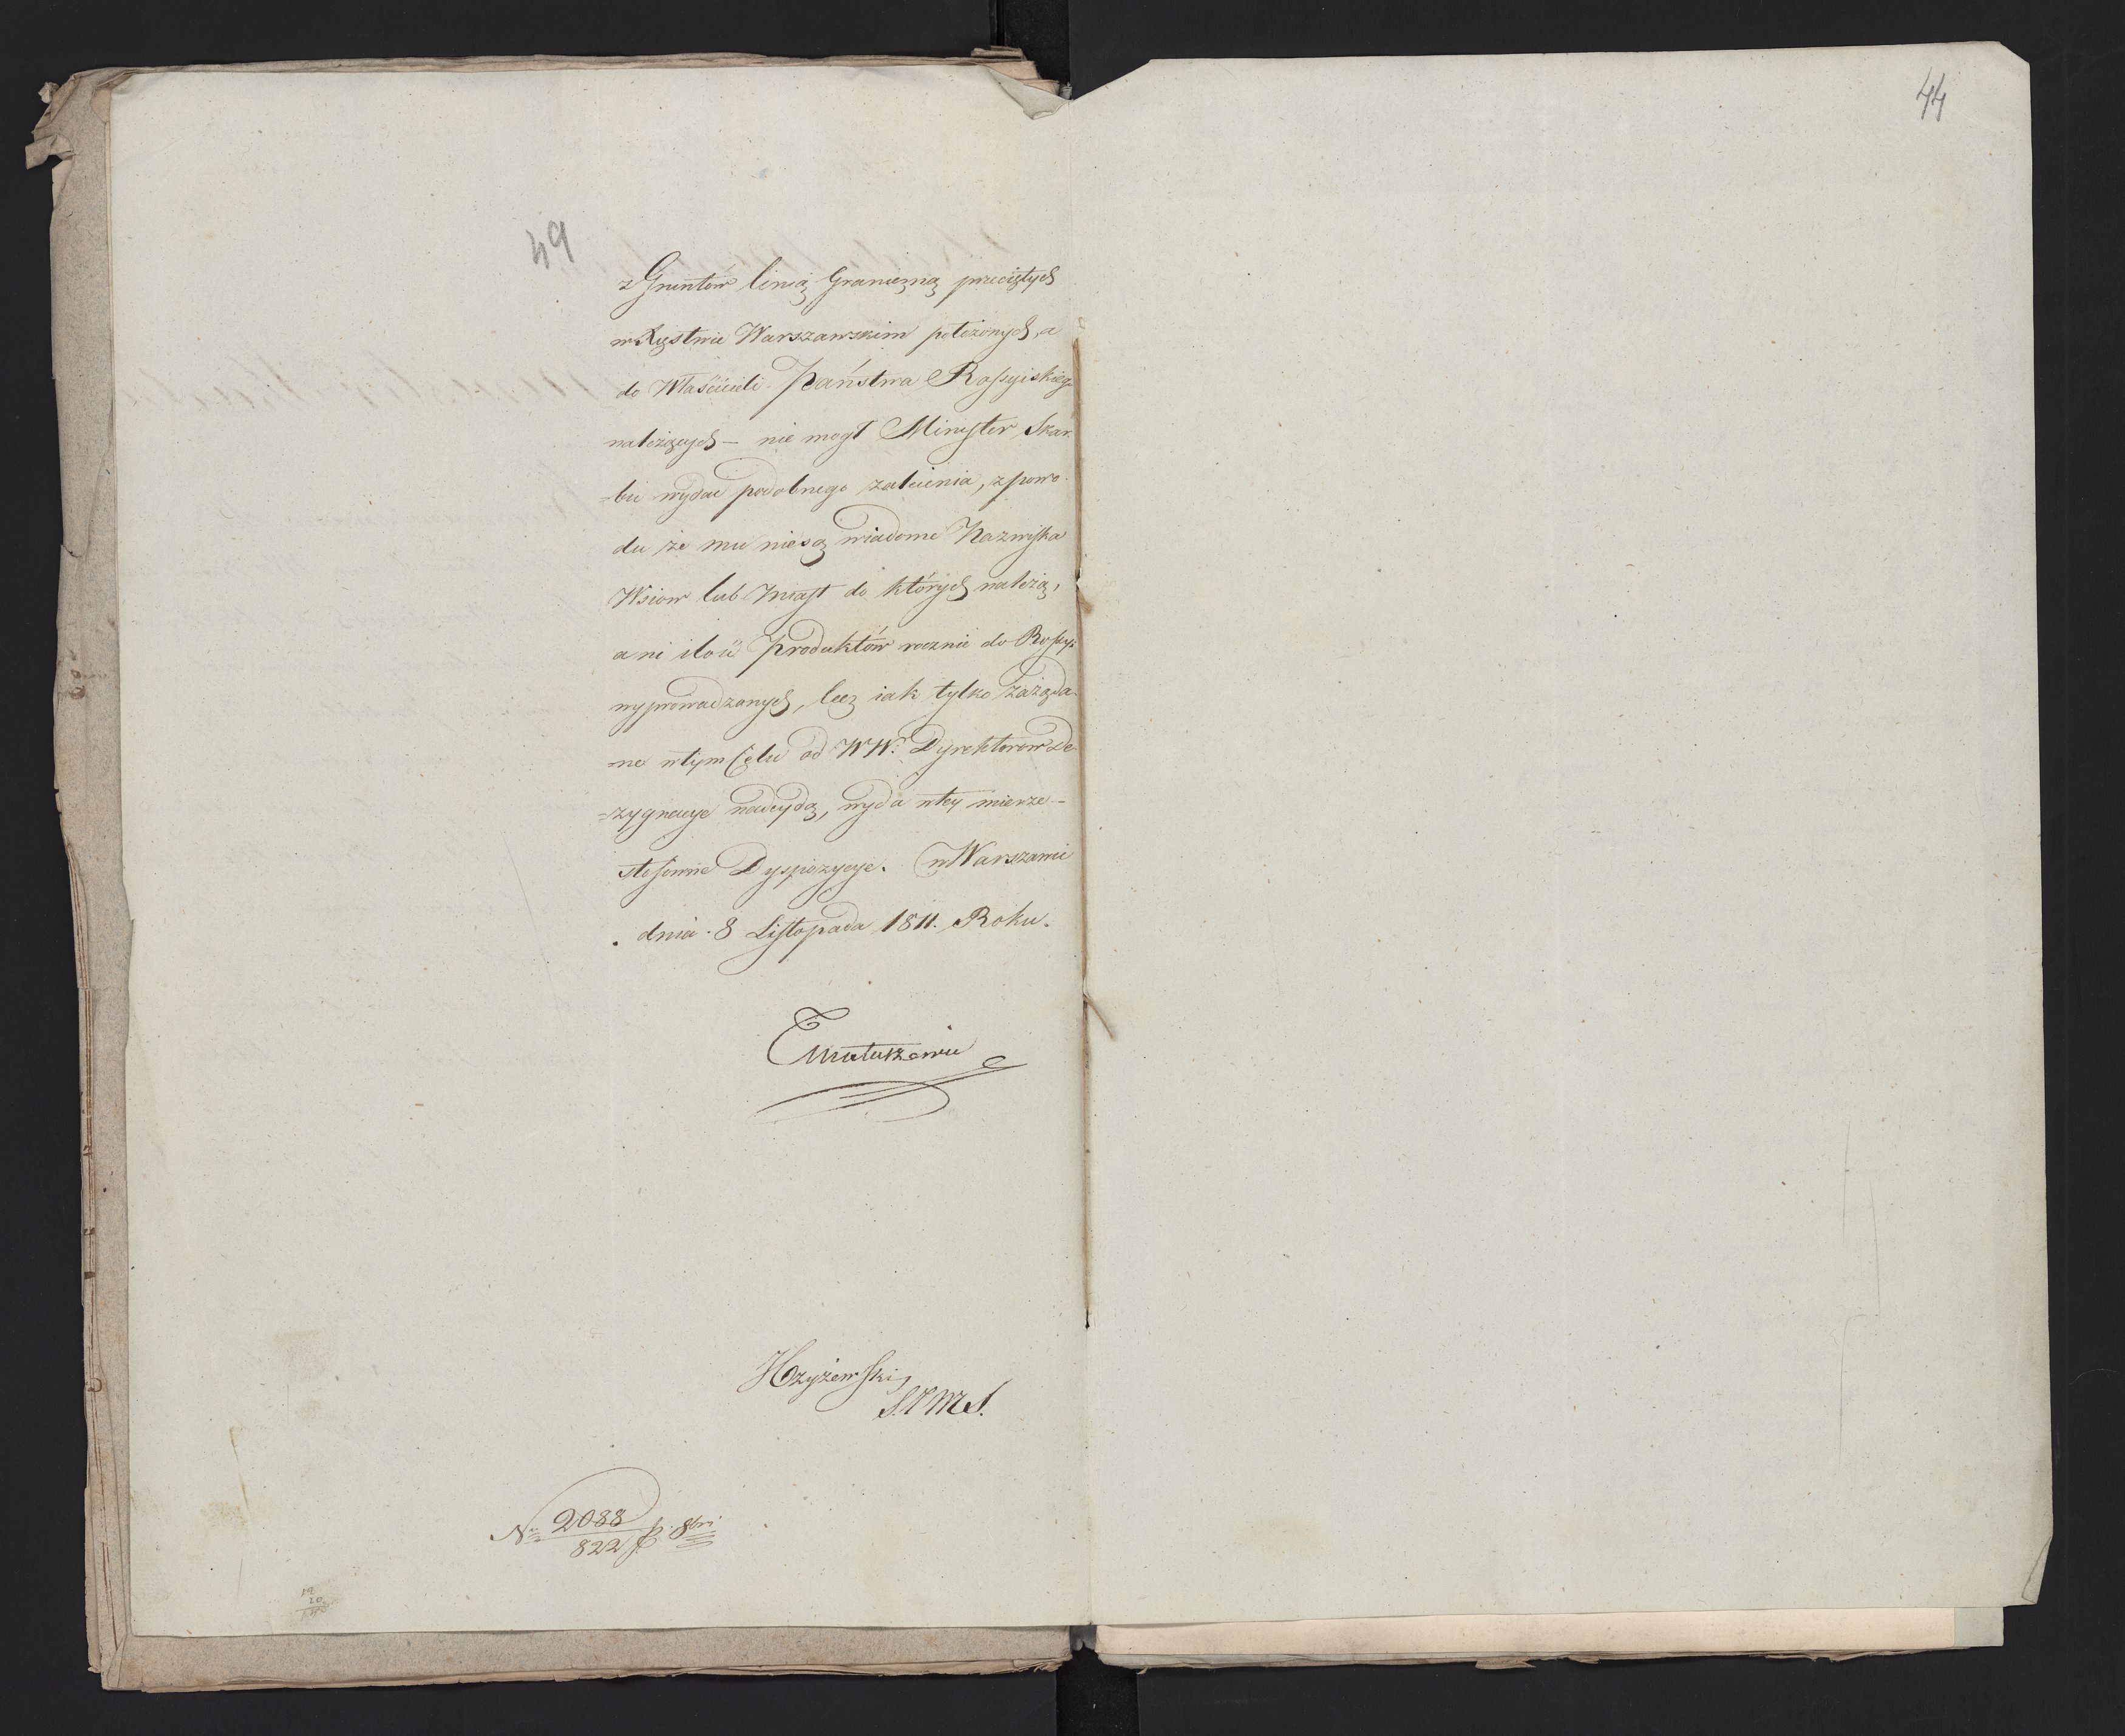 49
z Gruntów linią Graniczną przeciętych
w Xięstwie Warszawskim położonych, a
do Właścicieli Państwa Rossyiskiego
należących – nie mogł Minister Skar
=bu wydać podobnego zalecenia, z powo
du że mu nie są wiadome Nazwiska
Wsiow lub Miast do których należą,
ani ilość Produktów rocznie do Rossyi
wyprowadzanych, lecz iak tylko zażąda
=ne w tym Celu od WW. Dyrektorow De
=zygnacye nadeydą, wyda w tey mierze –
stosowne Dyspozycye. w Warszawie
. dnia 8 Listopada 1811. Roku.
T Matuszewic
S.J.M.S.
No 2088
822 p. 8bri
44